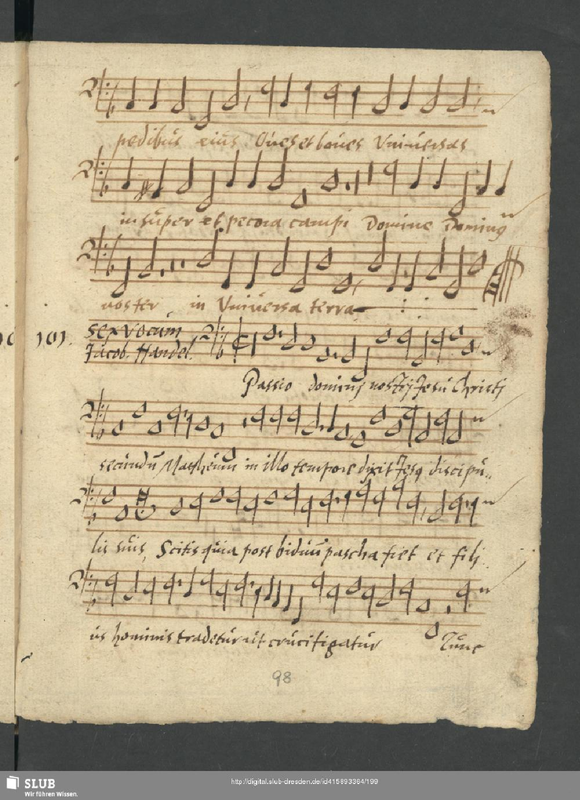 pedibus eius Oues et boues Vniuersas
insuper et pecora campi Domine Doming
noster in Vniuersa terra
101. sex vocum
Jacob. Handel.
Passio dominj nostrj Jesu Christj
secundū Mathēum in illo tempore dixit Jesg discipu„
lis suis, Scitis quia post biduū pascha fiet et filj
us hominis tradetur ut crucifigatur Tunc
98
SLUB
Wir führen Wissen.
http://digital.slub-dresden.de/id415893384/199